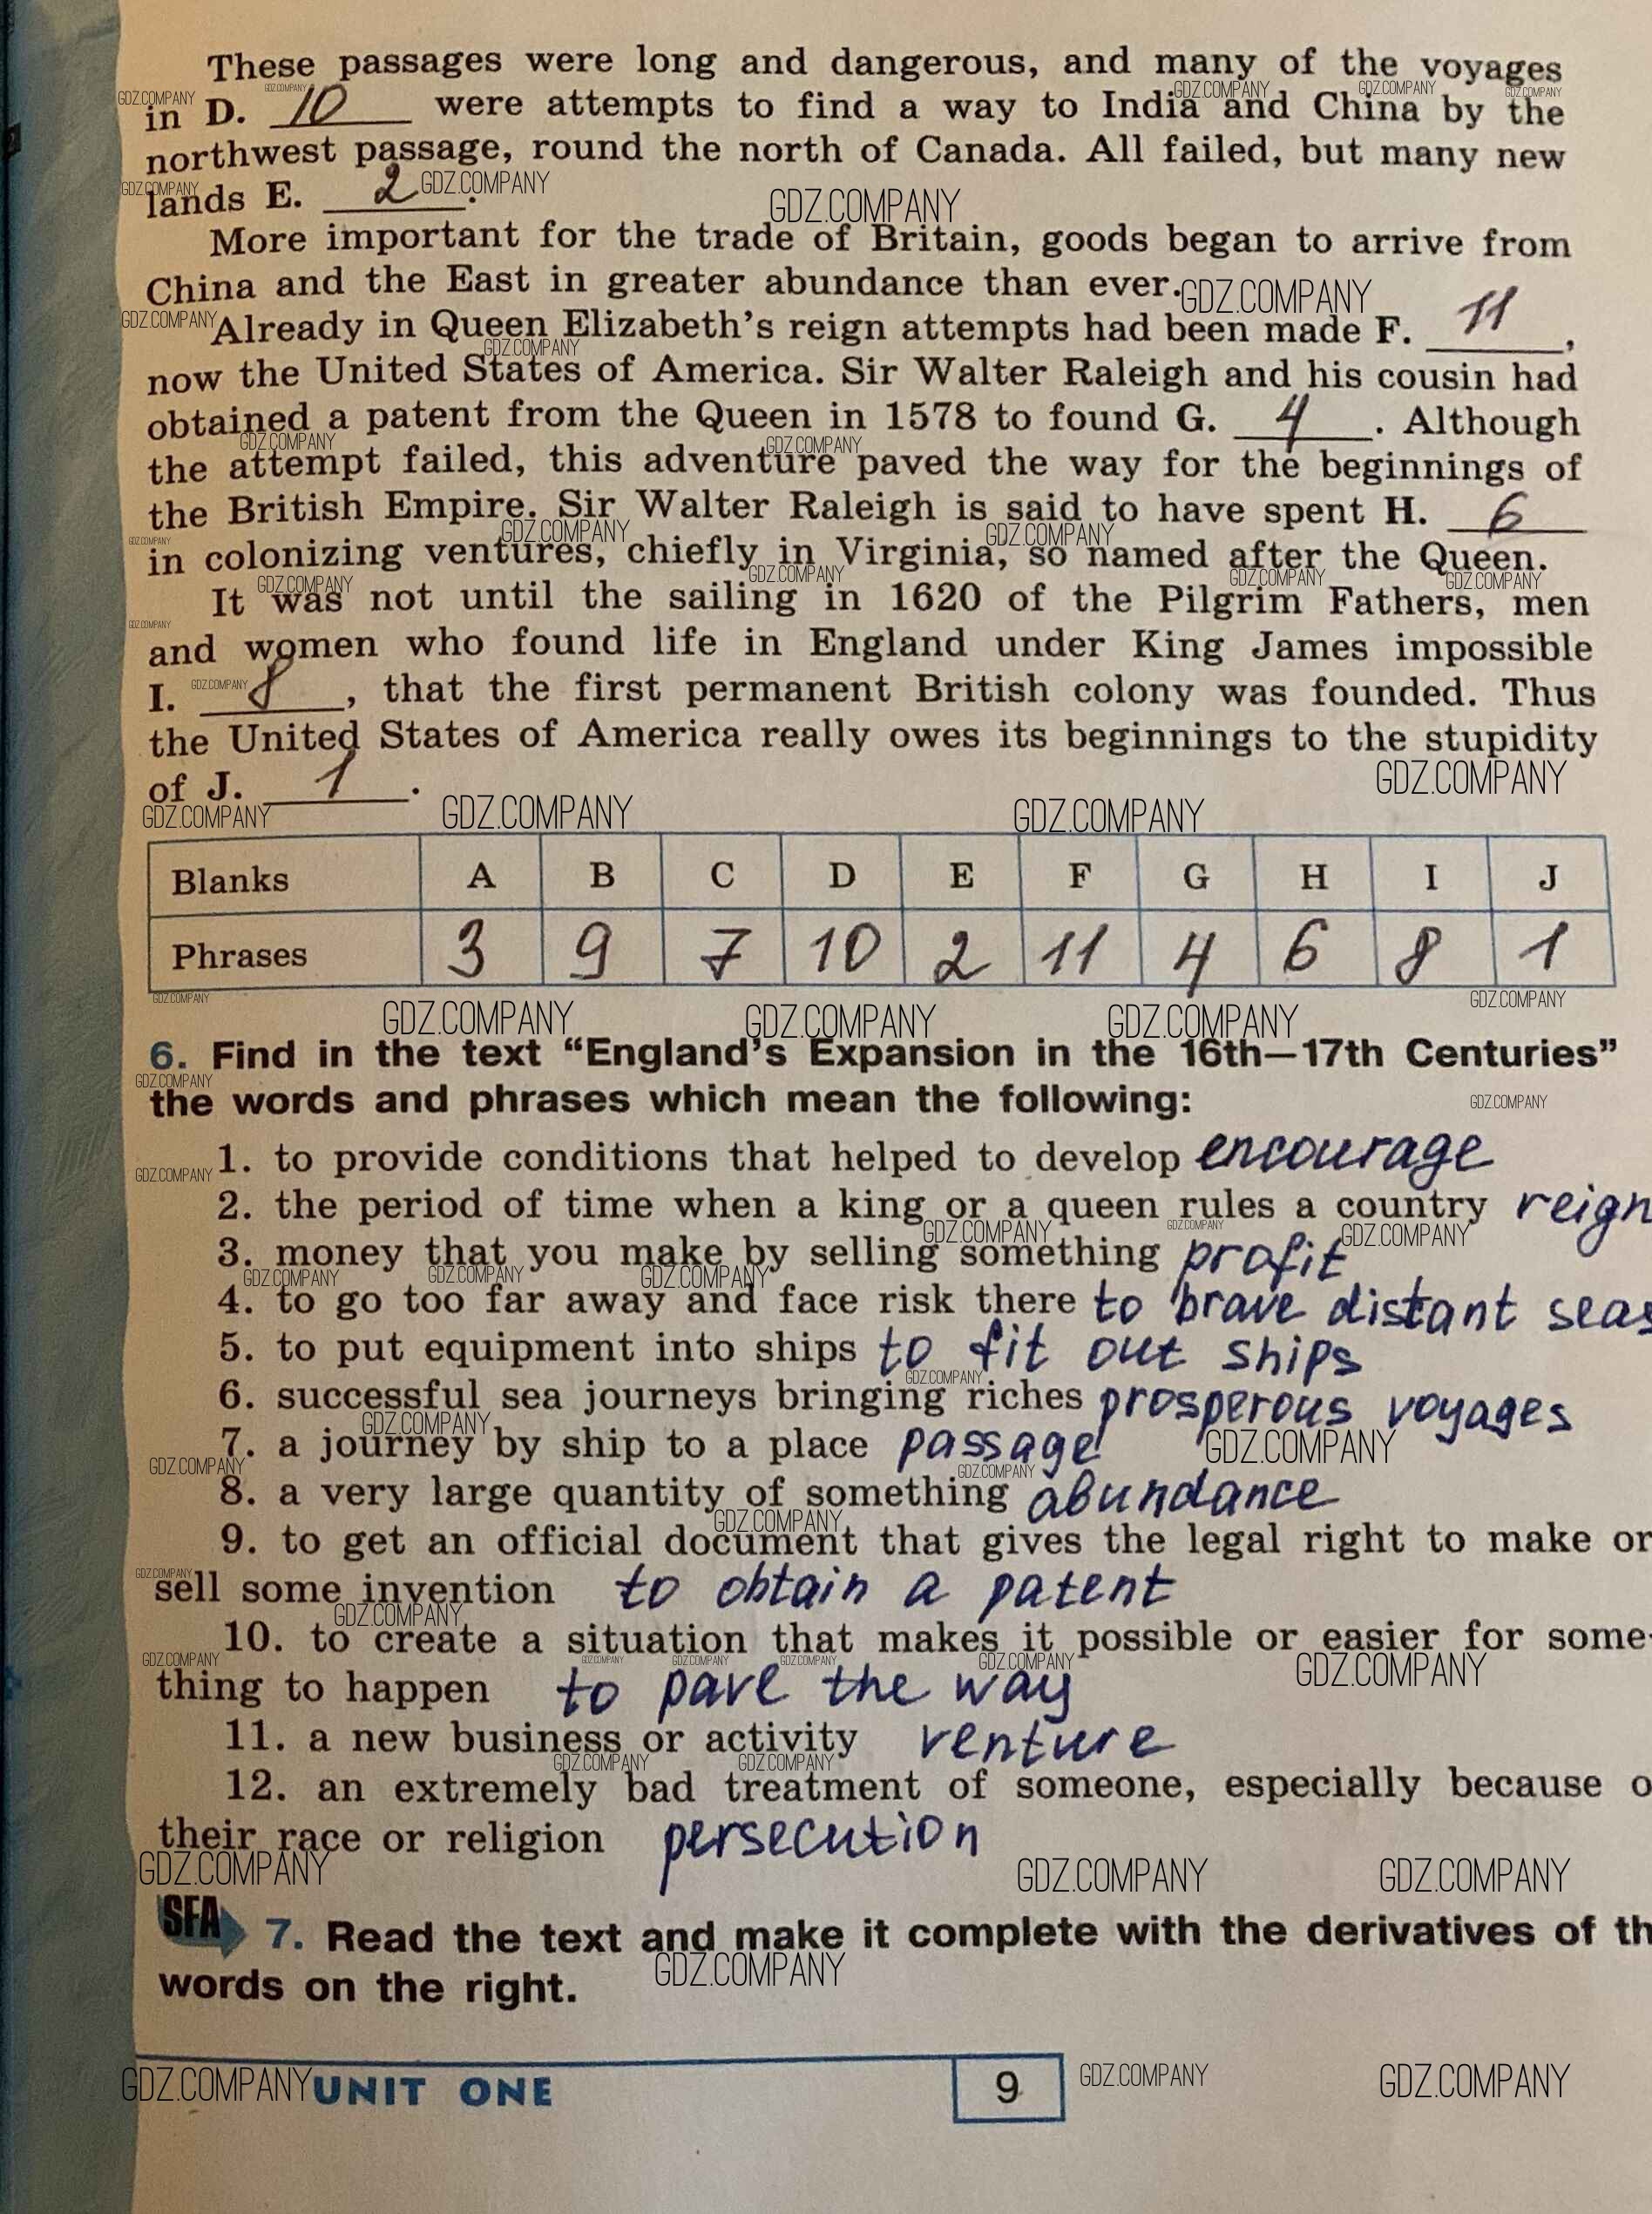 These passages were long and dangerous, and many of the voyages
in D. 10 were attempts to find a way to India and China by the
northwest passage, round the north of Canada. All failed, but many new
lands E. 2.
More important for the trade of Britain, goods began to arrive from
China and the East in greater abundance than ever.
Already in Queen Elizabeth's reign attempts had been made F. 11,
now the United States of America. Sir Walter Raleigh and his cousin had
obtained a patent from the Queen in 1578 to found G. 4. Although
the attempt failed, this adventure paved the way for the beginnings of
the British Empire. Sir Walter Raleigh is said to have spent H. 6
in colonizing ventures, chiefly in Virginia, so named after the Queen.
It was not until the sailing in 1620 of the Pilgrim Fathers, men
and women who found life in England under King James impossible
I. 8, that the first permanent British colony was founded. Thus
the United States of America really owes its beginnings to the stupidity
of J. 1.
Blanks A B C D E F G H I J
Phrases 3 9 7 10 2 11 4 6 8 1
6. Find in the text “England's Expansion in the 16th—17th Centuries”
the words and phrases which mean the following:
1. to provide conditions that helped to develop encourage
2. the period of time when a king or a queen rules a country reign
3. money that you make by selling something profit
4. to go too far away and face risk there to brave distant seas
5. to put equipment into ships to fit out ships
6. successful sea journeys bringing riches prosperous voyages
7. a journey by ship to a place passage
8. a very large quantity of something abundance
9. to get an official document that gives the legal right to make or
sell some invention to obtain a patent
10. to create a situation that makes it possible or easier for some-
thing to happen to pave the way
11. a new business or activity venture
12. an extremely bad treatment of someone, especially because o
their race or religion persecution
SFA 7. Read the text and make it complete with the derivatives of th
words on the right.
GDZ.COMPANY UNIT ONE 9 GDZ.COMPANY GDZ.COMPANY